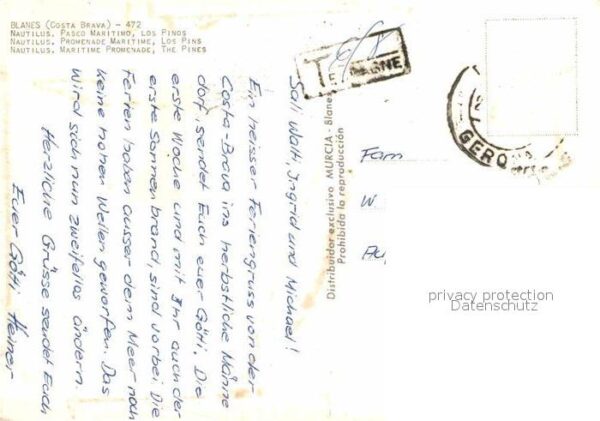 BLANES (COSTA BRAVA) - 472
NAUTILUS, PASEO MARITIMO, LOS PINOS
NAUTILUS, PROMENADE MARITIME, LOS PINS
NAUTILUS, MARITIME PROMENADE, THE PINES
Sali Walti, Ingrid und Michael!
Ein heisser Feriengruss von der
Costa-Brava ins herbstliche Männe
dorf sendet Euch euer Götti. Die
erste Woche und mit Ihr auch der
erste Sonnenbrand sind vorbei. Die
Ferien haben ausser dem Meer noch
keine hohen Wellen geworfen. Das
wird sich nun zweifellos ändern.
Herzliche Grüsse sendet Euch
Euer Götti Heiner
Distribuidor exclusivo MURCIA - Blanes
Prohibida la reproducción
T
GERO
Fam
W
privacy protection
Datenschutz